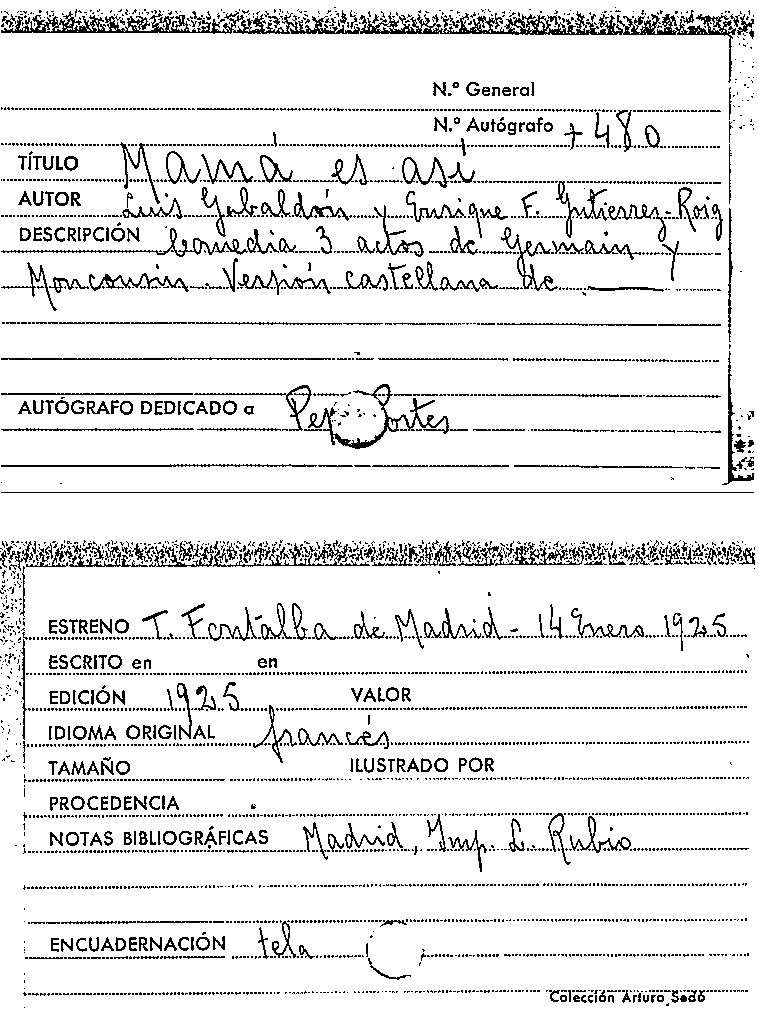 N.º General
N.º Autógrafo + 480
TÍTULO Mamá es así
AUTOR Luis Gabaldón y Enrique F. Gutierrez-Roig
DESCRIPCIÓN Comedia 3 actos de Germain y
Moncousin. Versión castellana de ———
AUTÓGRAFO DEDICADO a Pep Portes
ESTRENO T. Fontalba de Madrid - 14 Enero 1925
ESCRITO en en
EDICIÓN 1925 VALOR
IDIOMA ORIGINAL francés
TAMAÑO ILUSTRADO POR
PROCEDENCIA
NOTAS BIBLIOGRÁFICAS Madrid, Imp. L. Rubio
ENCUADERNACIÓN tela
Colección Arturo Sedó